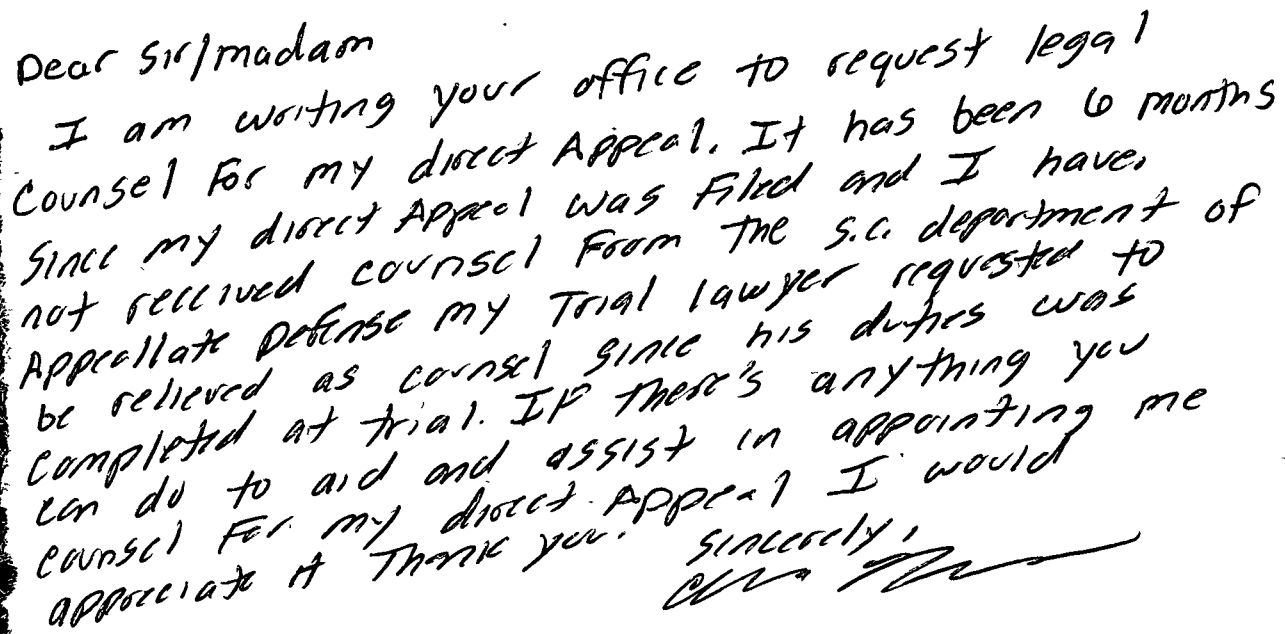 Dear Sir/madam
I am writing your office to request legal
Counsel For my direct Appeal. It has been 6 months
Since my direct Appeal was Filed and I have
not received counsel From The S.C. department of
Appeallate Defense my Trial lawyer requested to
be relieved as counsel since his duties was
completed at trial. IF There's anything you
can do to aid and assist in appointing me
counsel For my direct Appeal I would
appreciate it Thank you.
Sincerely,